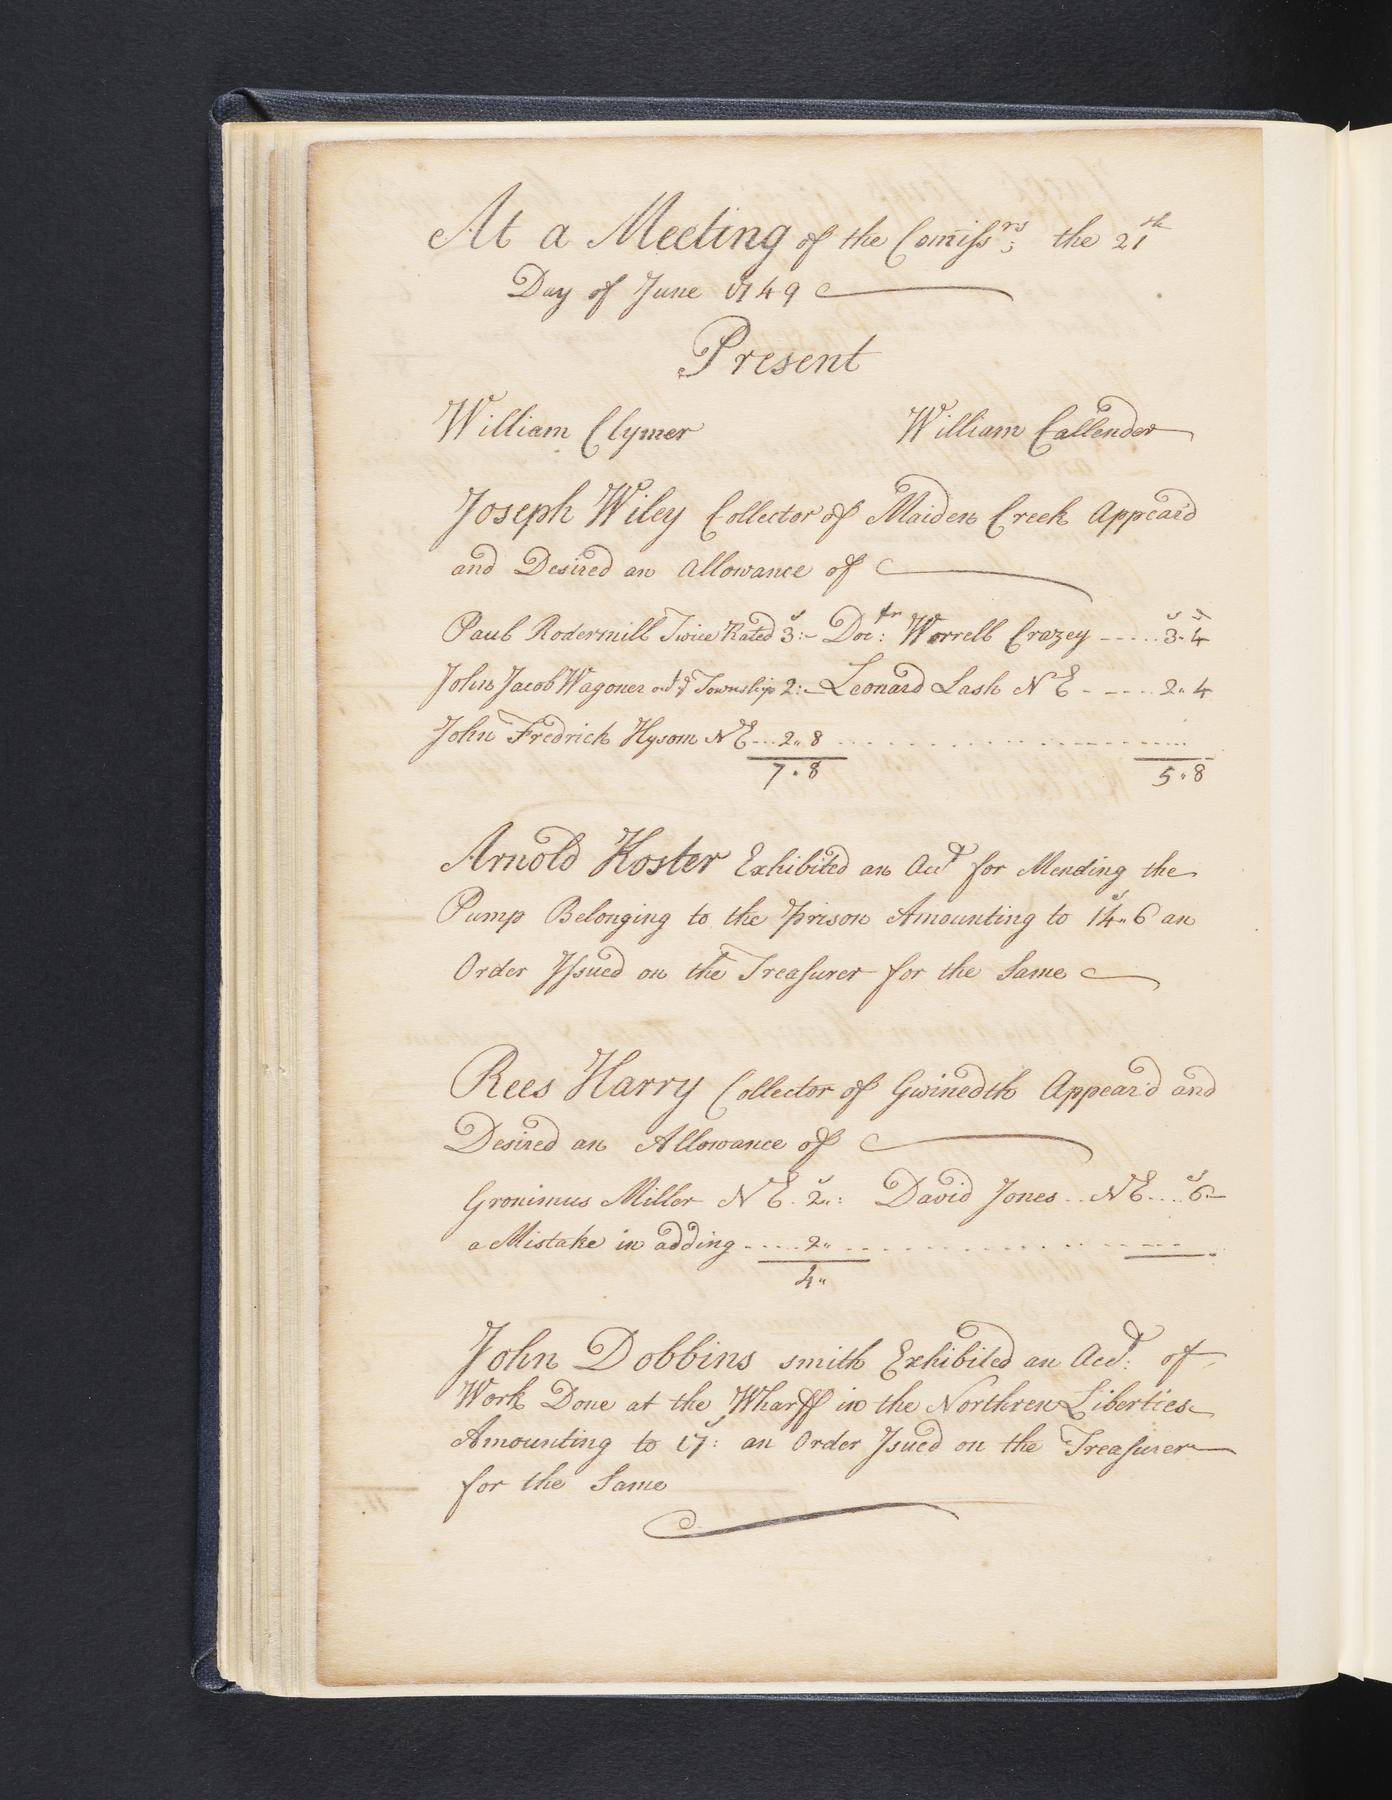 At a Meeting of the Comissrs; the 21th
Day of June 1749
Present
William Clymer William Callender
Joseph Wiley Collector of Maiden Creek Appear'd
and Desired an Allowance of
Paul Rodermill Twice Rated 3s:- Doctr: Worrell Crazey ----- 3s-4d
John Jacob Wagoner out ye Township 2:- Leonard Lash N E ----- 2"4
John Fredrick Hysom N E... 2"8
7"8 5"8
Arnold Koster Exhibited an Acct for Mending the
Pump Belonging to the Prison Amounting to 14s"6 an
Order Issued on the Treasurer for the Same
Rees Harry Collector of Gwinedth Appear'd and
Desired an Allowance of
Gronimus Miller N E. 2s": David Jones.. N E.... 6s-
a Mistake in adding ----- 2"
4"
John Dobbins smith Exhibited an Acct: of
Work Done at the Wharff in the Northren Liberties
Amounting to 17s: an Order Isued on the Treasurer
for the Same